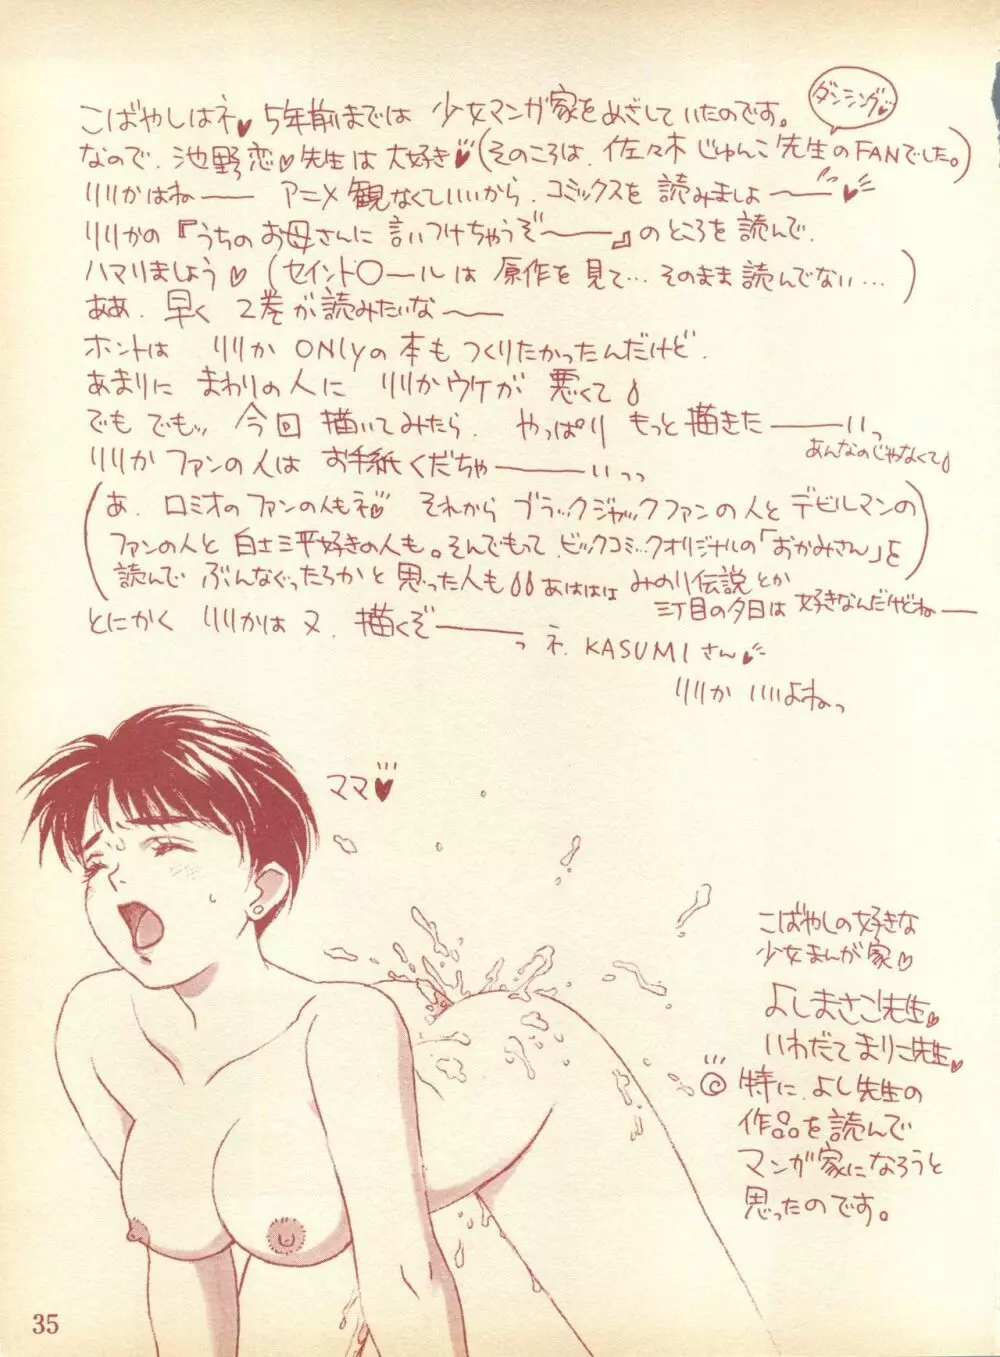 こばやしはネ♥ 5年前までは 少女マンガ家をめざしていたのです。
ダンシング♥
なので、池野恋♡先生は大好き♥(そのころは、佐々木じゅんこ先生のFANでした。)
リリカはねーー アニメ観なくていいから、コミックスを読みましょーー♥
リリカの『うちのお母さんに言いつけちゃうぞーー』のところを読んで、
ハマリましょう♡(セイント○ールは原作を見て…そのまま読んでない…)
ああ、早く 2巻が読みたいなーー
ホントは リリカ ONlyの本もつくりたかったんだけど、
あまりに まわりの人に リリカウケが 悪くて
でも でもッ 今回 描いてみたら、 やっぱり もっと描きたーーいっ
あんなのじゃなくて
リリカ ファンの人は お手紙くだちゃーーいっっ
(あ、ロミオのファンの人もネ♥ それから ブラックジャックファンの人とデビルマンの
ファンの人と 白土三平好きの人も。そんでもって ビックコミックオリジナルの「おかみさん」を
読んで ぶんなぐったろかと思った人も あははは みのり伝説とか
三丁目の夕日は 好きなんだけどねー)
とにかく リリカは又、描くぞーーっ ネ、KASUMIさん♥
リリカ いいよねっ
ママ♥
こばやしの好きな
少女まんが家♡
よしまさこ先生♥
いわだてまりこ先生♥
◎特に、よし先生の
作品を読んで
マンガ家になろうと
思ったのです。
35